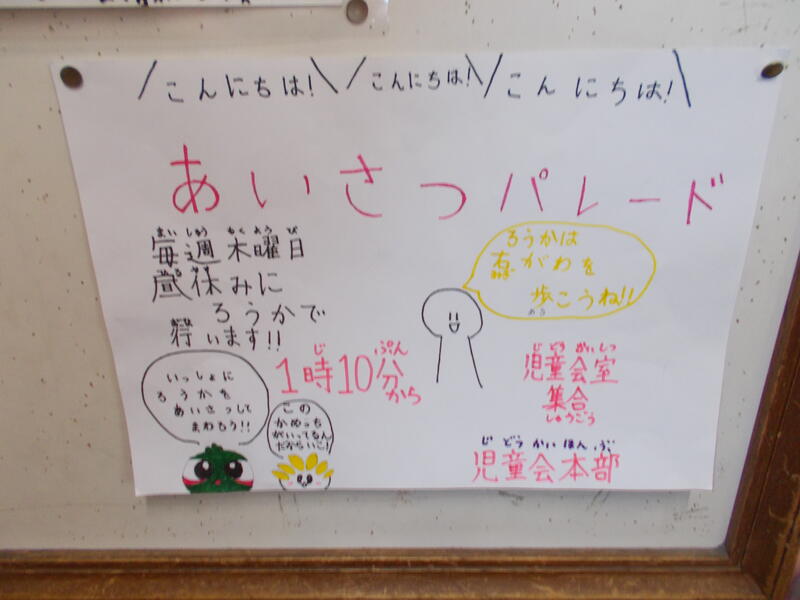 こんにちは! こんにちは! こんにちは!
あいさつパレード
まいしゅう もくようび
毎週木曜日
ひるやす
昼休みに
ろうかで
行います!!
ろうかは
右がわを
みぎ
歩こうね!!
じ ぷん
1時10分から
じどうかいしつ
児童会室
集合
しゅうごう
いっしょに
ろうかを
あいさつして
まわろう!!
この
かめっち
がいってるん
だからいこ!
じどうかいほんぶ
児童会本部